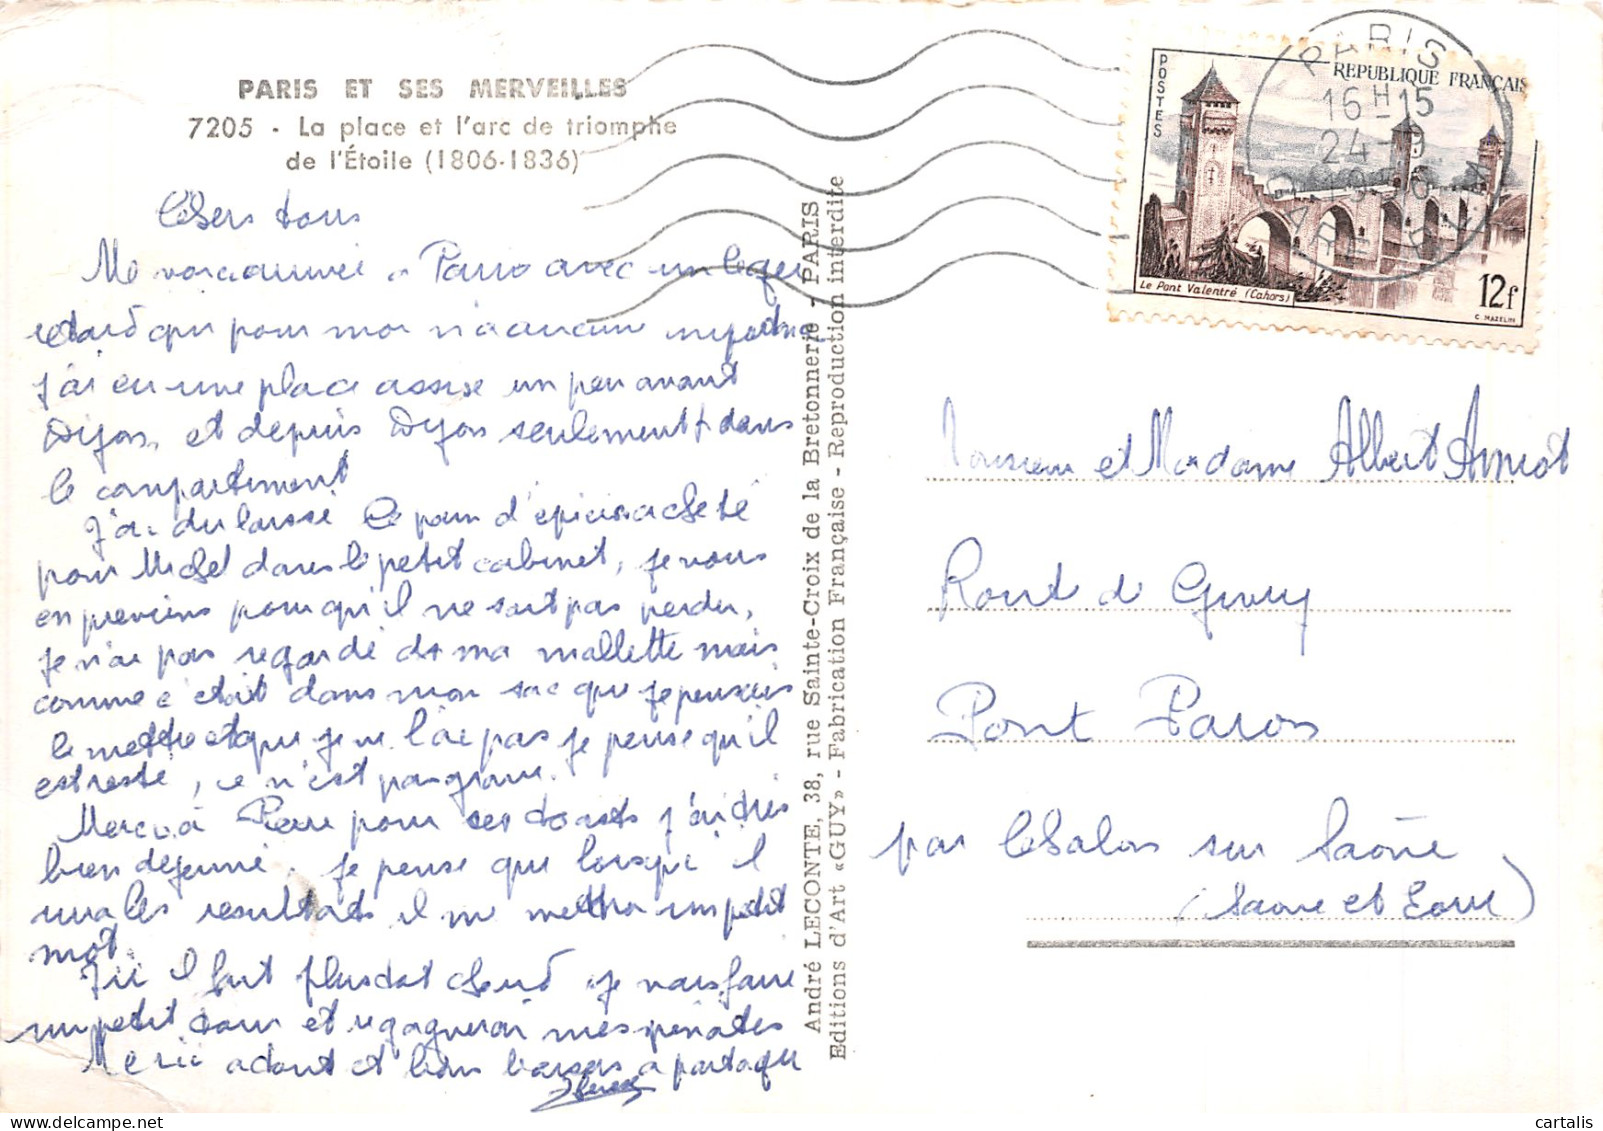 PARIS ET SES MERVEILLES
7205 - La place et l'arc de triomphe
de l'Étoile (1806-1836)
Chers tous
Me voici arrivée à Paris avec un léger
retard qui pour moi n'a aucune importance
J'ai eu une place assise un peu avant
Dijon, et depuis Dijon seulement dans
le compartiment
J'ai du laissé le pain d'épices acheté
pour Michel dans le petit cabinet, je vous
en préviens pour qu'il ne soit pas perdu,
Je n'ai pas regardé ds ma mallette mais
comme c'était dans mon sac que je pensais
le mettre et que je ne l'ai pas je pense qu'il
est resté, ce n'est pas grave.
Merci à Pierre pour ses toasts j'ai très
bien déjeuné. Je pense que lorsqu'il
aura les résultats il me mettra un petit
mot.
Ici il fait plutôt chaud je vais faire
un petit tour et regagnerai mes pénates
Merci à tout et bons baisers à partager
POSTES
REPUBLIQUE FRANÇAIS
Le Pont Valentré (Cahors)
12f
C. MAZELIN
PARIS
16H15
24-9
GARE
André LECONTE, 38, rue Sainte-Croix de la Bretonnerie - PARIS
Editions d'Art «GUY» - Fabrication Française - Reproduction interdite
Monsieur et Madame Albert Amiot
Route de Givry
Pont Paron
par Chalon sur Saône
(Saone et Loire)
cartalis